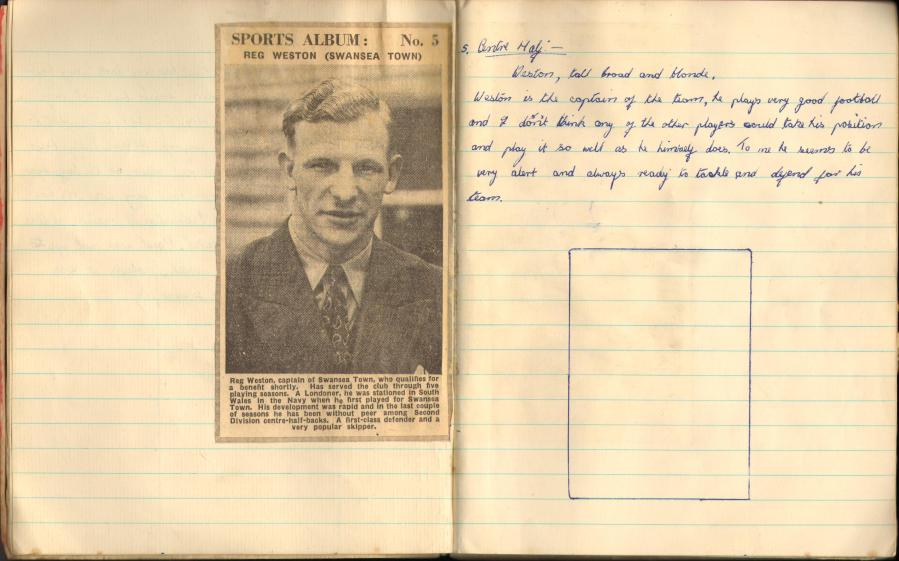 SPORTS ALBUM: No. 5
REG WESTON (SWANSEA TOWN)
Reg Weston, captain of Swansea Town, who qualifies for
a benefit shortly. Has served the club through five
playing seasons. A Londoner, he was stationed in South
Wales in the Navy when he first played for Swansea
Town. His development was rapid and in the last couple
of seasons he has been without peer among Second
Division centre-half-backs. A first-class defender and a
very popular skipper.
5. Centre Half —
Weston, tall broad and blonde.
Weston is the captain of the team, he plays very good football
and I don't think any of the other players could take his position
and play it so well as he himself does. To me he seems to be
very alert and always ready to tackle and defend for his
team.